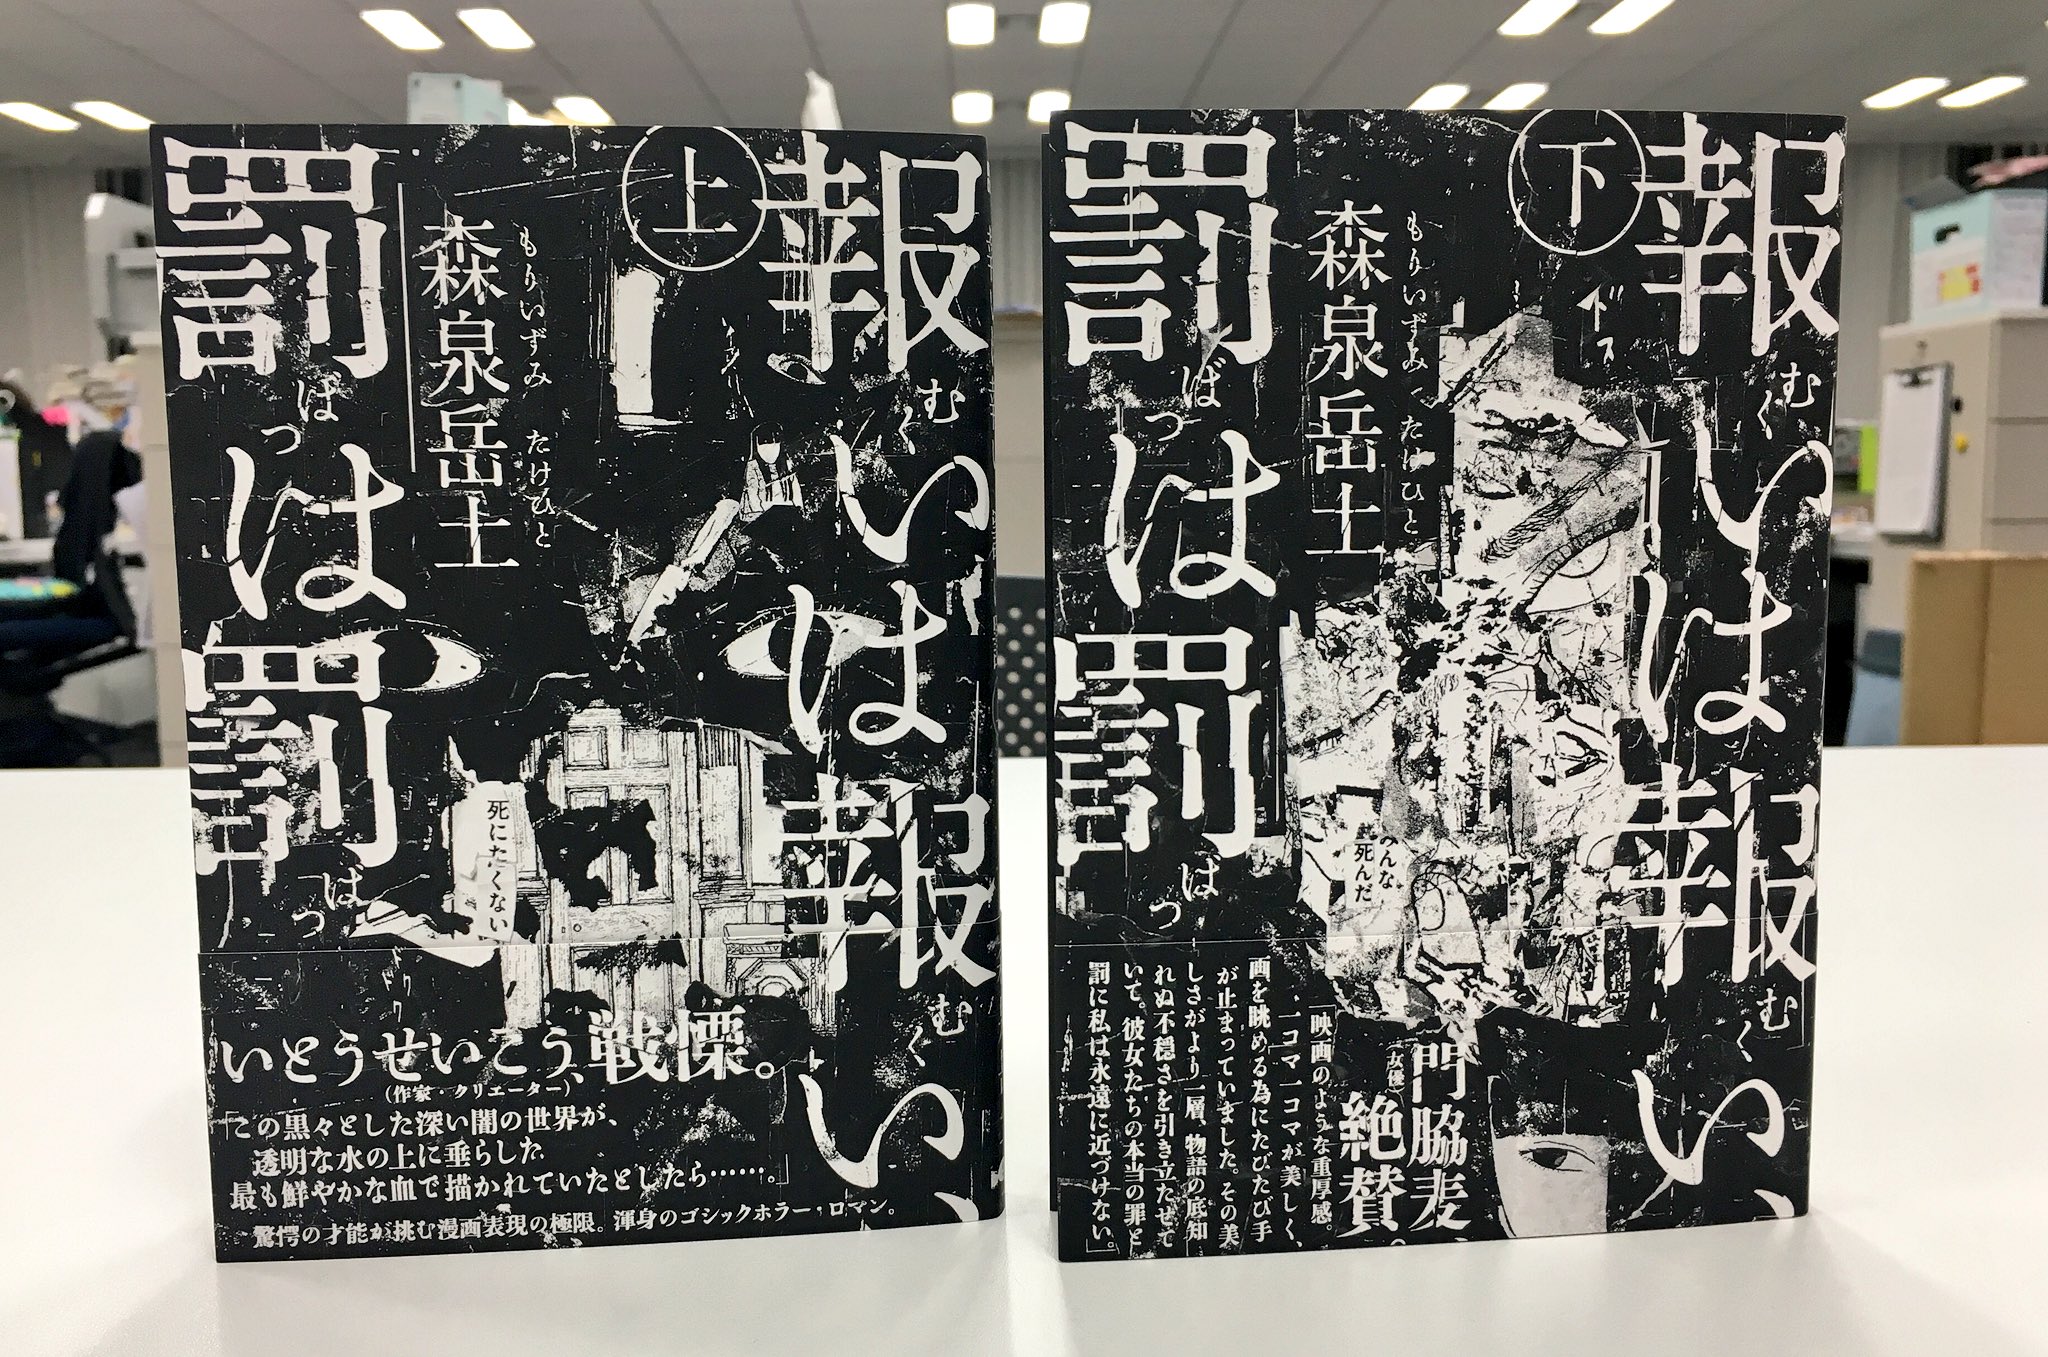 報いは報い、
むく
むく
罰は罰
ばつ
ばつ
上
森泉岳土
もりいずみ たけひと
死にたくない
いとうせいこう、戦慄。
（作家・クリエーター）
「この黒々とした深い闇の世界が、
透明な水の上に垂らした
最も鮮やかな血で描かれていたとしたら……。」
驚愕の才能が挑む漫画表現の極限。渾身のゴシックホラー・ロマン。
報いは報い、
むく
むく
罰は罰
ばつ
ばつ
下
森泉岳土
もりいずみ たけひと
みんな
死んだ
門脇麦、
（女優）
絶賛。
「映画のような重厚感。
一コマ一コマが美しく、
画を眺める為にたびたび手
が止まっていました。その美
しさがより一層、物語の底知
れぬ不穏さを引き立たせて
いて。彼女たちの本当の罪と
罰に私は永遠に近づけない。」